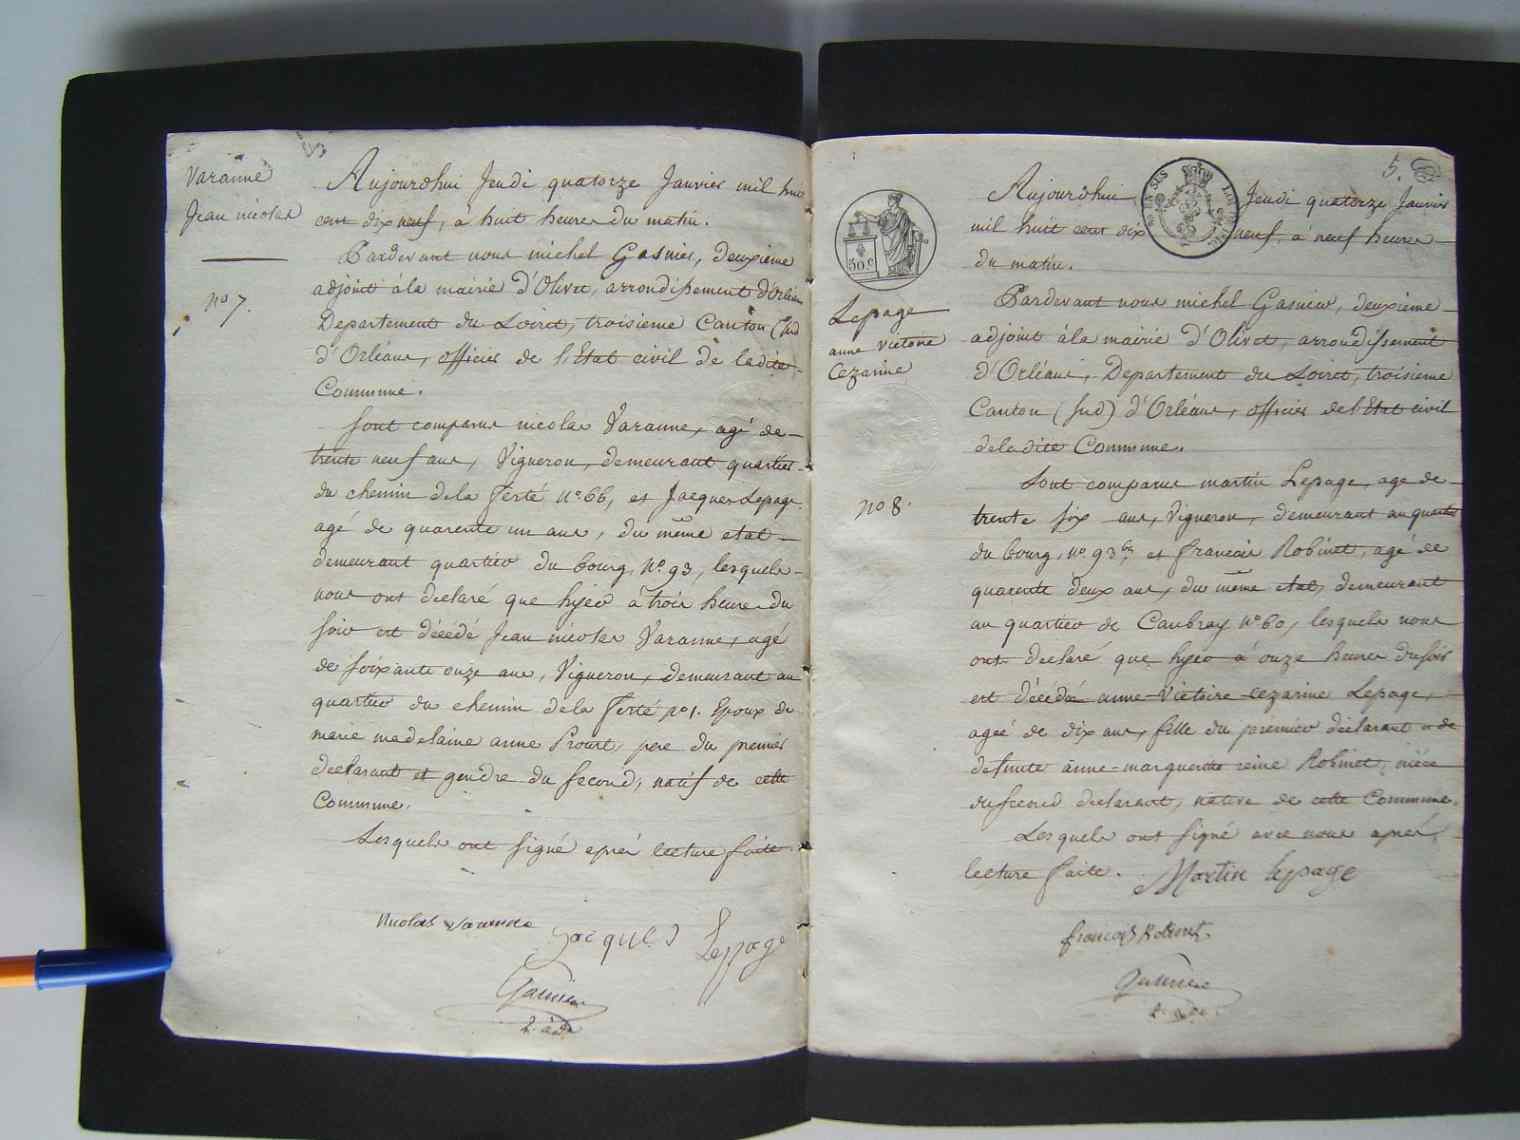 Varanne
Jean nicolas
no 7.
Aujourdhui Jeudi quatorze Janvier mil huit
cent dix neuf, a huit heures du matin.
Pardevant nous michel Gasnier, deuxieme
adjoint à la mairie d'Olivet, arrondissement d'Orléans
Departement du Loiret, troisieme Canton (sud
d'Orléans, officier de l'Etat civil de ladite
Commune.
Sont comparus nicolas Varanne, agé de
trente neuf ans, Vigneron, demeurant quartier
du chemin de la ferté No 66, et Jacques Lepage
agé de quarente un ans, du même etat
demeurant quartier du bourg, No. 93, lesquels
nous ont declaré que hyer à trois heures du
soir est décédé Jean nicolas Varanne, agé
de soixante onze ans, Vigneron, demeurant au
quartier du chemin de la ferté no 1. Epoux de
marie madelaine anne Proust, pere du premier
declarant et gendre du second, natif de cette
Commune.
Lesquels ont signé après lecture faite.
Nicolas Varanne Jacques Lepage
Gasnier
2. adt
5.
50 c
Aujourdhui Jeudi quatorze Janvier
mil huit cent dix neuf, à neuf heures
du matin.
Lepage
anne Victoire
Cezarine
no 8.
Pardevant nous michel Gasnier, deuxieme
adjoint à la mairie d'Olivet, arrondissement
d'Orléans, Departement du Loiret, troisieme
Canton (sud) d'Orléans, officier de l'Etat civil
de la dite Commune.
Sont comparus martin Lepage, age de
trente six ans, Vigneron, demeurant au quartier
du bourg, no. 93 bis et francois Robinet, agé de
quarente deux ans, du même etat, demeurant
au quartier de Caubray No 60, lesquels nous
ont declaré que hyer à onze heures du soir
est décédée anne Victoire Cezarine Lepage,
ageé de dix ans, fille du premier declarant et de
defunte anne marguerite reine Robinet, niéce
du second declarant, native de cette Commune.
Lesquels ont signé avec nous après
lecture faite. Martin Lepage
francois Robinet
Gasnier
2. adt